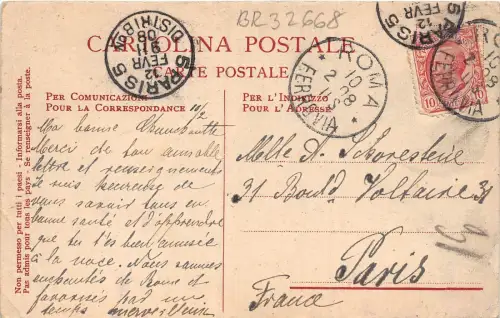 BR32668
CARTOLINA POSTALE
CARTE POSTALE
PER COMUNICAZIONI
POUR LA CORRESPONDANCE
PER L'INDIRIZZO
POUR L'ADRESSE
Non permesso per tutti i paesi - Informarsi alla posta
Pas admis pour tous les pays - Se renseigner à la poste.
PARIS 5
DISTRIBON
ROMA
FERROVIA
PARIS 5
FEVR
10/2
Ma bonne
Merci de ton aimable
lettre et renseignements
Je suis heureuse de
vous savoir tous en
bonne santé et d'apprendre
que tu t'es bien amusée
à la noce. Nous sommes
enchantés de Rome et
favorisés par un
temps merveilleux
Mlle
31 Bould Voltaire 31
Paris
France